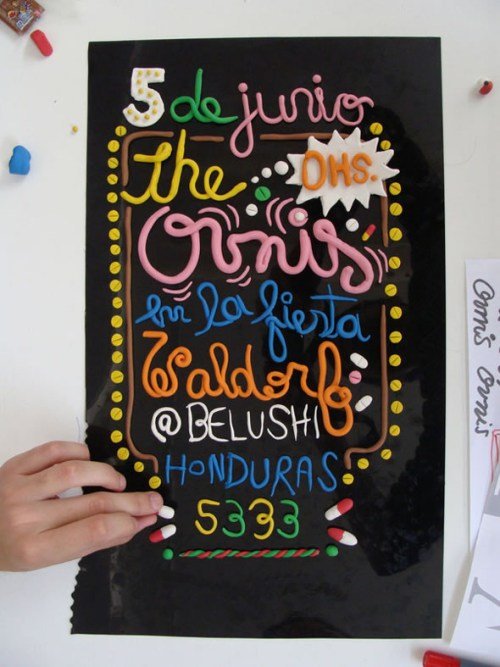 5 de junio
the
OHS.
Ovnis
en la fiesta
Waldorf
@BELUSHI
HONDURAS
5333
Ovnis Ovnis